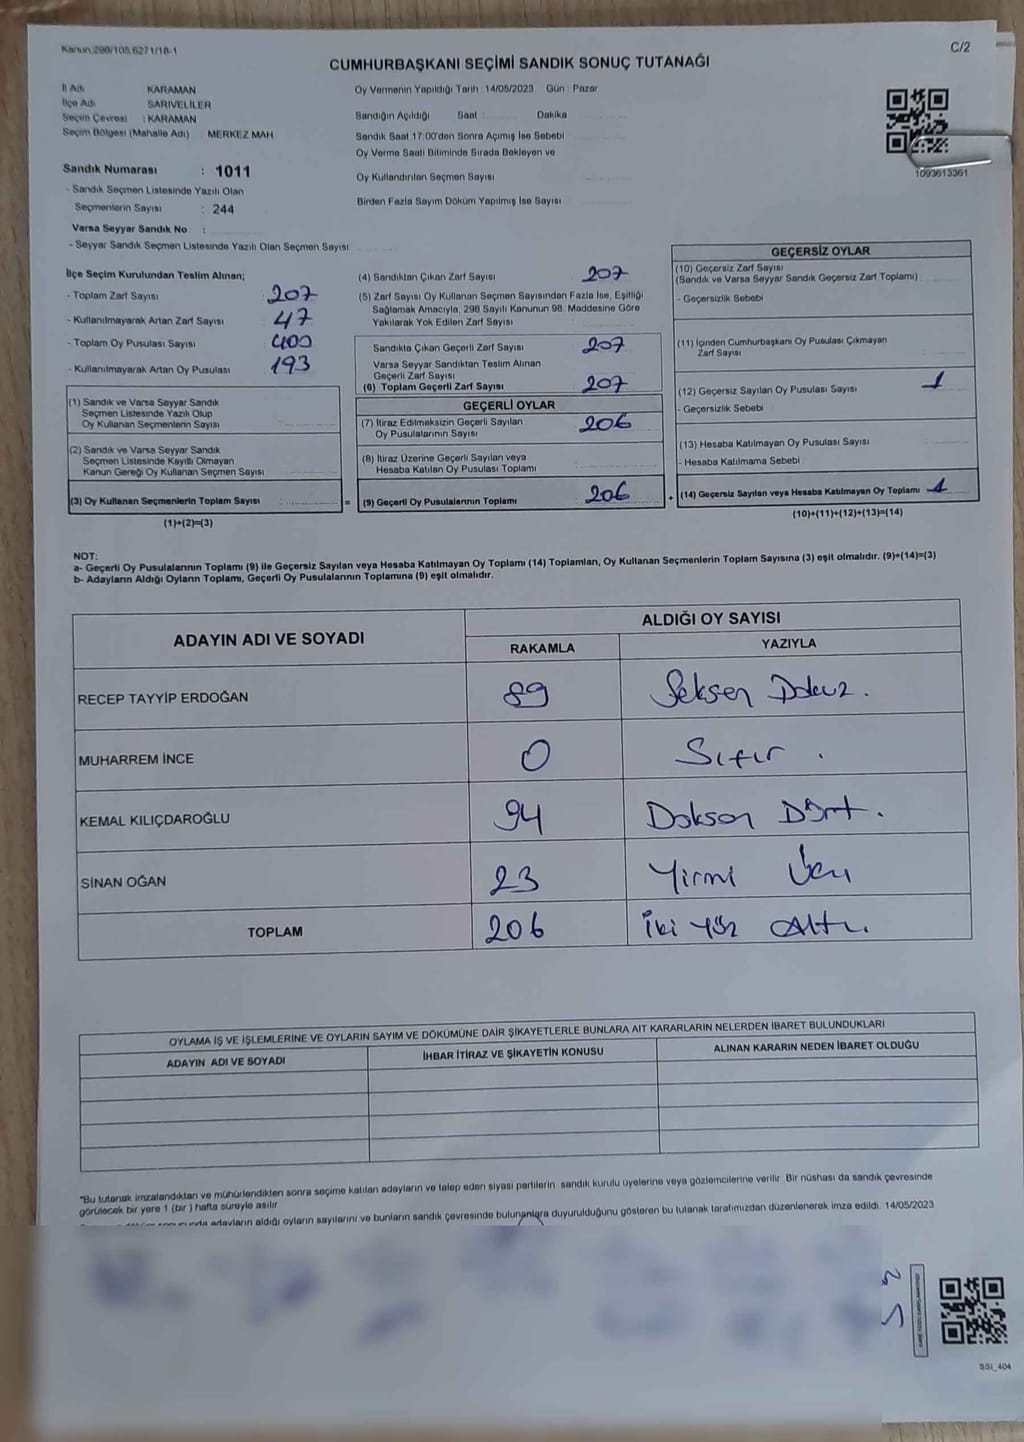 Kanun:298/105,6271/18-1
C/2
CUMHURBAŞKANI SEÇİMİ SANDIK SONUÇ TUTANAĞI
İl Adı KARAMAN
İlçe Adı SARIVELİLER
Seçim Çevresi : KARAMAN
Seçim Bölgesi (Mahalle Adı) MERKEZ MAH
Sandık Numarası : 1011
- Sandık Seçmen Listesinde Yazılı Olan
Seçmenlerin Sayısı : 244
Varsa Seyyar Sandık No :
- Seyyar Sandık Seçmen Listesinde Yazılı Olan Seçmen Sayısı
Oy Vermenin Yapıldığı Tarih : 14/05/2023 Gün : Pazar
Sandığın Açıldığı Saat Dakika
Sandık Saat 17:00'den Sonra Açımış İse Sebebi
Oy Verme Saati Bitiminde Sırada Bekleyen ve
Oy Kullandırılan Seçmen Sayısı
Birden Fazla Sayım Döküm Yapılmış İse Sayısı
1093613361
İlçe Seçim Kurulundan Teslim Alınan;
- Toplam Zarf Sayısı 207
- Kullanılmayarak Artan Zarf Sayısı 47
- Toplam Oy Pusulası Sayısı 400
- Kullanılmayarak Artan Oy Pusulası 193
(1) Sandık ve Varsa Seyyar Sandık
Seçmen Listesinde Yazılı Olup
Oy Kullanan Seçmenlerin Sayısı
(2) Sandık ve Varsa Seyyar Sandık
Seçmen Listesinde Kayıtlı Olmayan
Kanun Gereği Oy Kullanan Seçmen Sayısı
(3) Oy Kullanan Seçmenlerin Toplam Sayısı : =
(1)+(2)=(3)
(4) Sandıktan Çıkan Zarf Sayısı 207
(5) Zarf Sayısı Oy Kullanan Seçmen Sayısından Fazla İse, Eşitliği
Sağlamak Amacıyla, 298 Sayılı Kanunun 98. Maddesine Göre
Yakılarak Yok Edilen Zarf Sayısı
Sandıkta Çıkan Geçerli Zarf Sayısı 207
Varsa Seyyar Sandıktan Teslim Alınan
Geçerli Zarf Sayısı
(6) Toplam Geçerli Zarf Sayısı 207
GEÇERLİ OYLAR
(7) İtiraz Edilmeksizin Geçerli Sayılan
Oy Pusulalarının Sayısı 206
(8) İtiraz Üzerine Geçerli Sayılan veya
Hesaba Katılan Oy Pusulası Toplamı
(9) Geçerli Oy Pusulalarının Toplamı 206 +
GEÇERSİZ OYLAR
(10) Geçersiz Zarf Sayısı
(Sandık ve Varsa Seyyar Sandık Geçersiz Zarf Toplamı)
- Geçersizlik Sebebi
(11) İçinden Cumhurbaşkanı Oy Pusulası Çıkmayan
Zarf Sayısı
(12) Geçersiz Sayılan Oy Pusulası Sayısı 1
- Geçersizlik Sebebi
(13) Hesaba Katılmayan Oy Pusulası Sayısı
- Hesaba Katılmama Sebebi
(14) Geçersiz Sayılan veya Hesaba Katılmayan Oy Toplamı 1
(10)+(11)+(12)+(13)=(14)
NOT:
a- Geçerli Oy Pusulalarının Toplamı (9) ile Geçersiz Sayılan veya Hesaba Katılmayan Oy Toplamı (14) Toplamları, Oy Kullanan Seçmenlerin Toplam Sayısına (3) eşit olmalıdır. (9)+(14)=(3)
b- Adayların Aldığı Oyların Toplamı, Geçerli Oy Pusulalarının Toplamına (9) eşit olmalıdır.
ADAYIN ADI VE SOYADI ALDIĞI OY SAYISI
RAKAMLA YAZIYLA
RECEP TAYYİP ERDOĞAN 89 Seksen Dokuz.
MUHARREM İNCE 0 Sıfır.
KEMAL KILIÇDAROĞLU 94 Doksan Dört.
SİNAN OĞAN 23 Yirmi Üç
TOPLAM 206 İki Yüz Altı.
OYLAMA İŞ VE İŞLEMLERİNE VE OYLARIN SAYIM VE DÖKÜMÜNE DAİR ŞİKAYETLERLE BUNLARA AİT KARARLARIN NELERDEN İBARET BULUNDUKLARI
ADAYIN ADI VE SOYADI İHBAR İTİRAZ VE ŞİKAYETİN KONUSU ALINAN KARARIN NEDEN İBARET OLDUĞU
*Bu tutanak imzalandıktan ve mühürlendikten sonra seçime katılan adayların ve talep eden siyasi partilerin sandık kurulu üyelerine veya gözlemcilerine verilir. Bir nüshası da sandık çevresinde
görülecek bir yere 1 (bir) hafta süreyle asılır
adayların aldığı oyların sayılarını ve bunların sandık çevresinde bulunanlara duyurulduğunu gösteren bu tutanak tarafımızdan düzenlenerek imza edildi. 14/05/2023
SSI_404